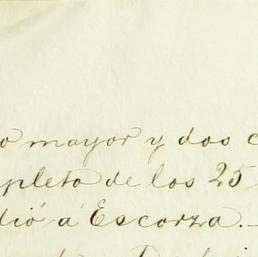 o mayor y dos c
pleto de los 25
dió á Escorza.—